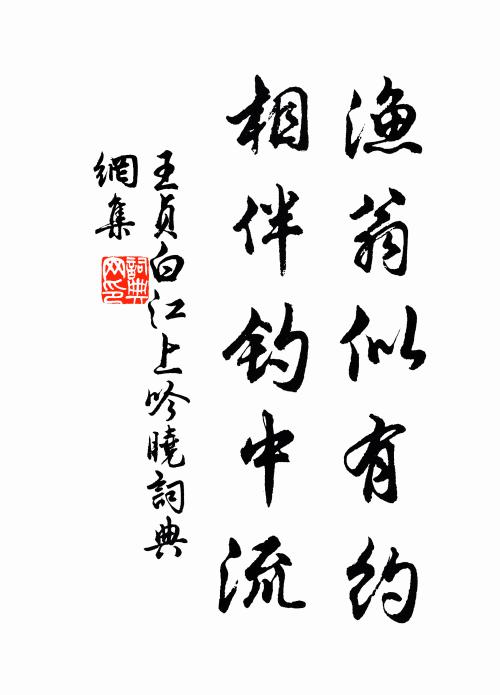 漁翁似有約
相伴釣中流
王貞白江上吟曉詞典
網集
詞典
网印